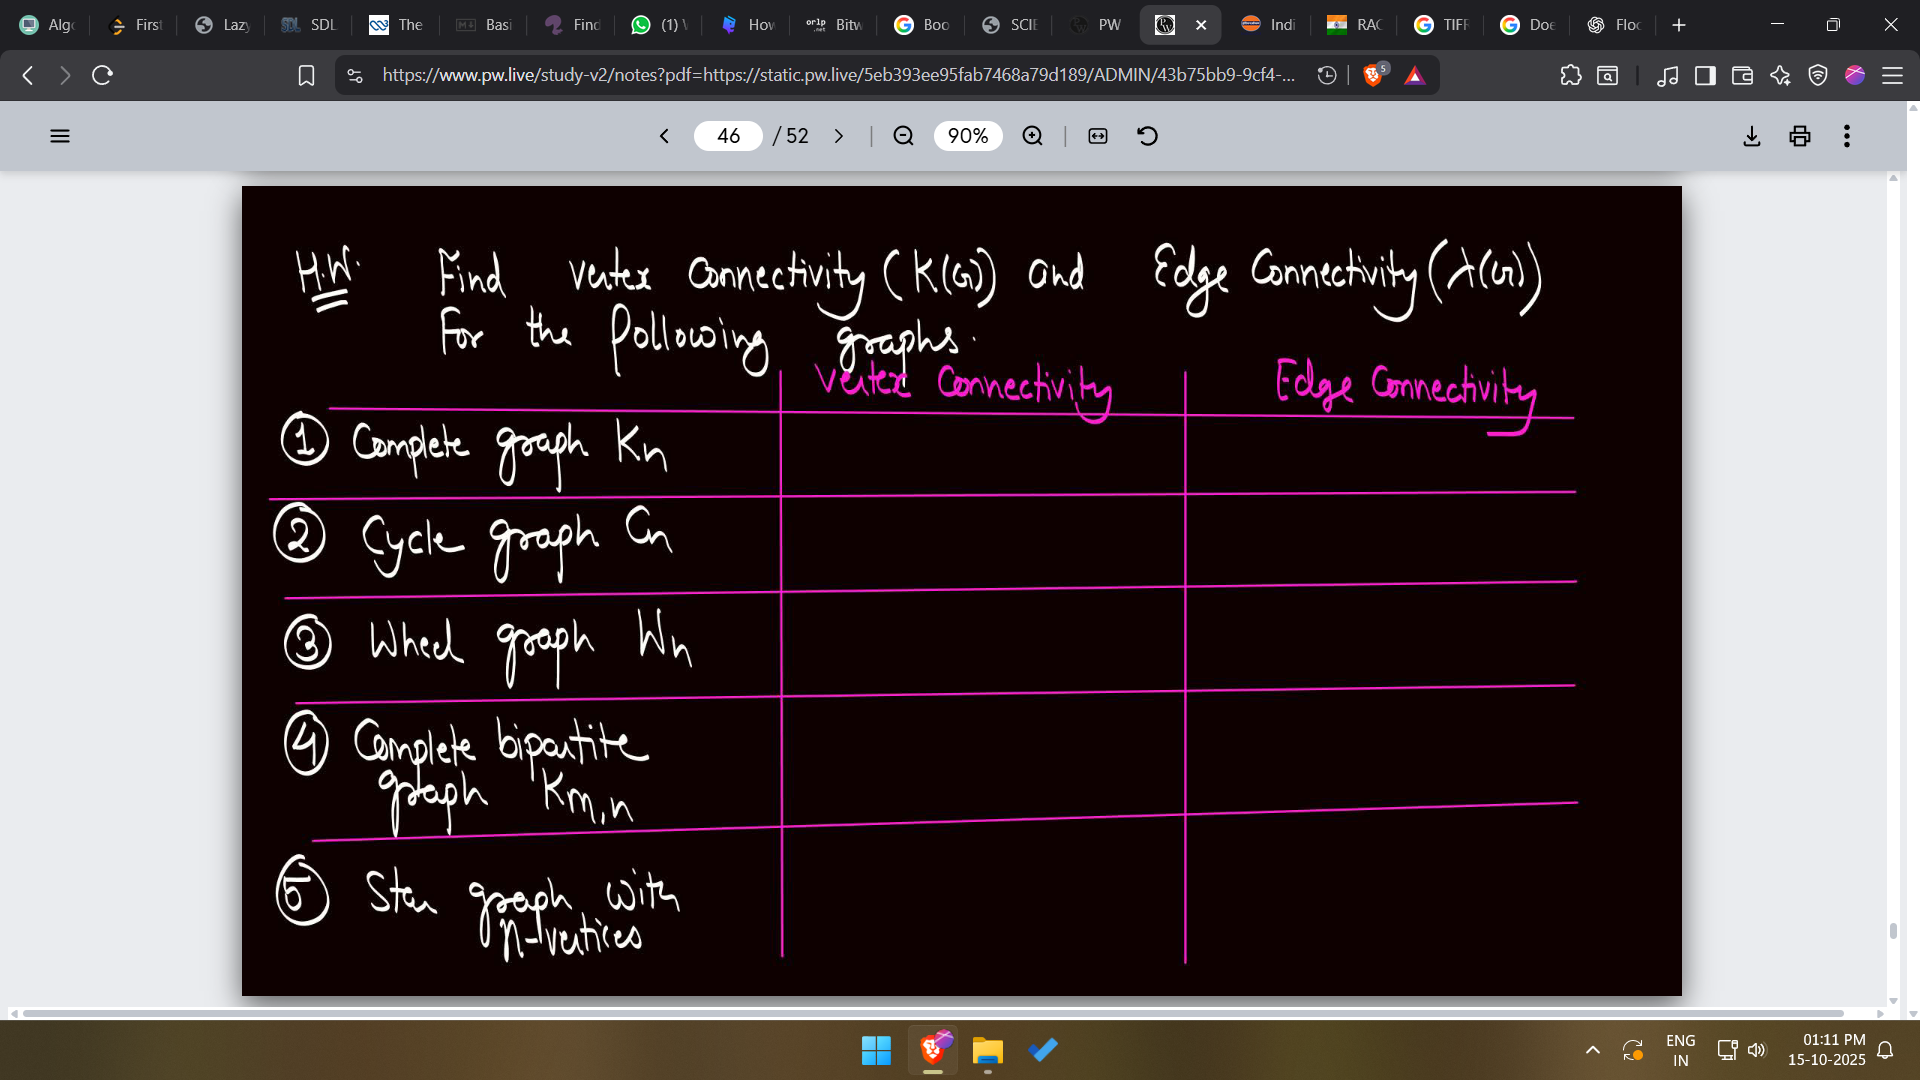 Algo
First
Lazy
SDL
The
Basi
Find
(1) V
How
orlp .net
Bitw
Boo
SCIE
PW
Indi
RAC
TIFR
Doe
Floc
https://www.pw.live/study-v2/notes?pdf=https://static.pw.live/5eb393ee95fab7468a79d189/ADMIN/43b75bb9-9cf4-...
5
46 / 52
90%
H.W. Find vertex Connectivity (K(G)) and Edge Connectivity (λ(G))
For the following graphs.
Vertex Connectivity
Edge Connectivity
① Complete graph Kn
② Cycle graph Cn
③ Wheel graph Wn
④ Complete bipartite
graph Km,n
⑤ Star graph with
n-vertices
ENG
IN
01:11 PM
15-10-2025